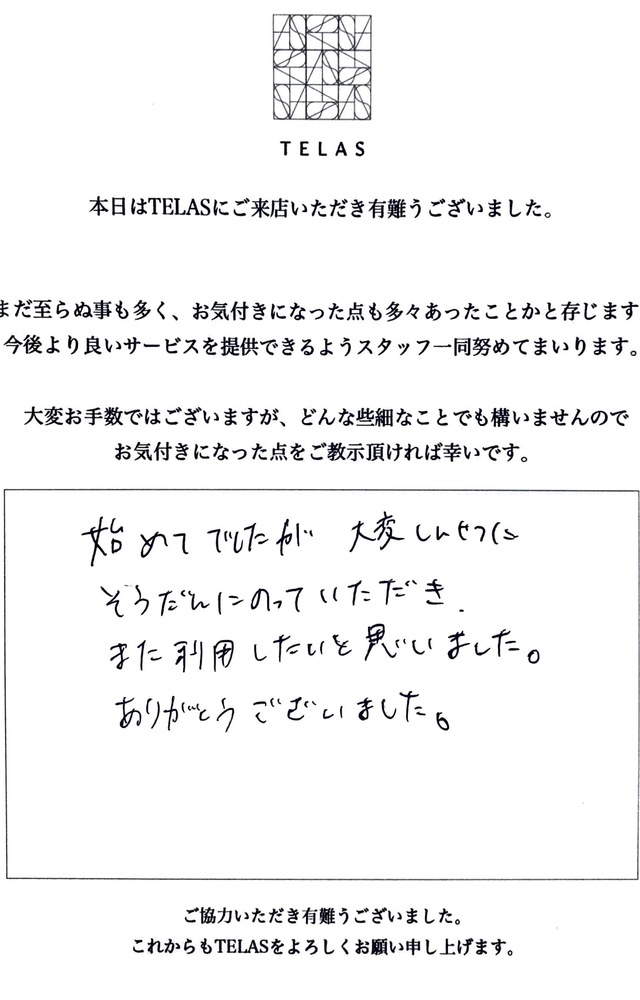 TELAS
本日はTELASにご来店いただき有難うございました。
まだ至らぬ事も多く、お気付きになった点も多々あったことかと存じます
今後より良いサービスを提供できるようスタッフ一同努めてまいります。
大変お手数ではございますが、どんな些細なことでも構いませんので
お気付きになった点をご教示頂ければ幸いです。
始めてでしたが 大変しんせつに
そうだんにのっていただき、
また利用したいと思いました。
ありがとうございました。
ご協力いただき有難うございました。
これからもTELASをよろしくお願い申し上げます。